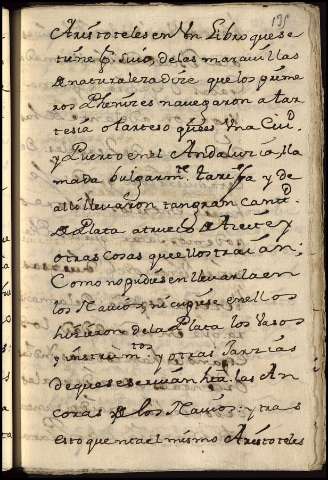 135
Aristoteles en Un Libro que se
tiene p.r suio, de las maravillas
de naturaleza dize que los prime
ros Phenizes navegaron a tar
tesia o tarteso que es Una Ciu.d
y Puerto en el Andaluzia, lla
mada bulgarm.te tarifa y de
alli llevaron tan gram cant.d
de Plata a trueco de Azeite y
otras cosas que ellos traian;
Como no pudiesen llevarla en
los Navios, ni cupiese en ellos
hizieron de la Plata los Vasos
y instrum.tos y otras Jarzias
de que se servian hta. las An
coras de los Navios: y tras
esto que nta el mismo Aristoteles